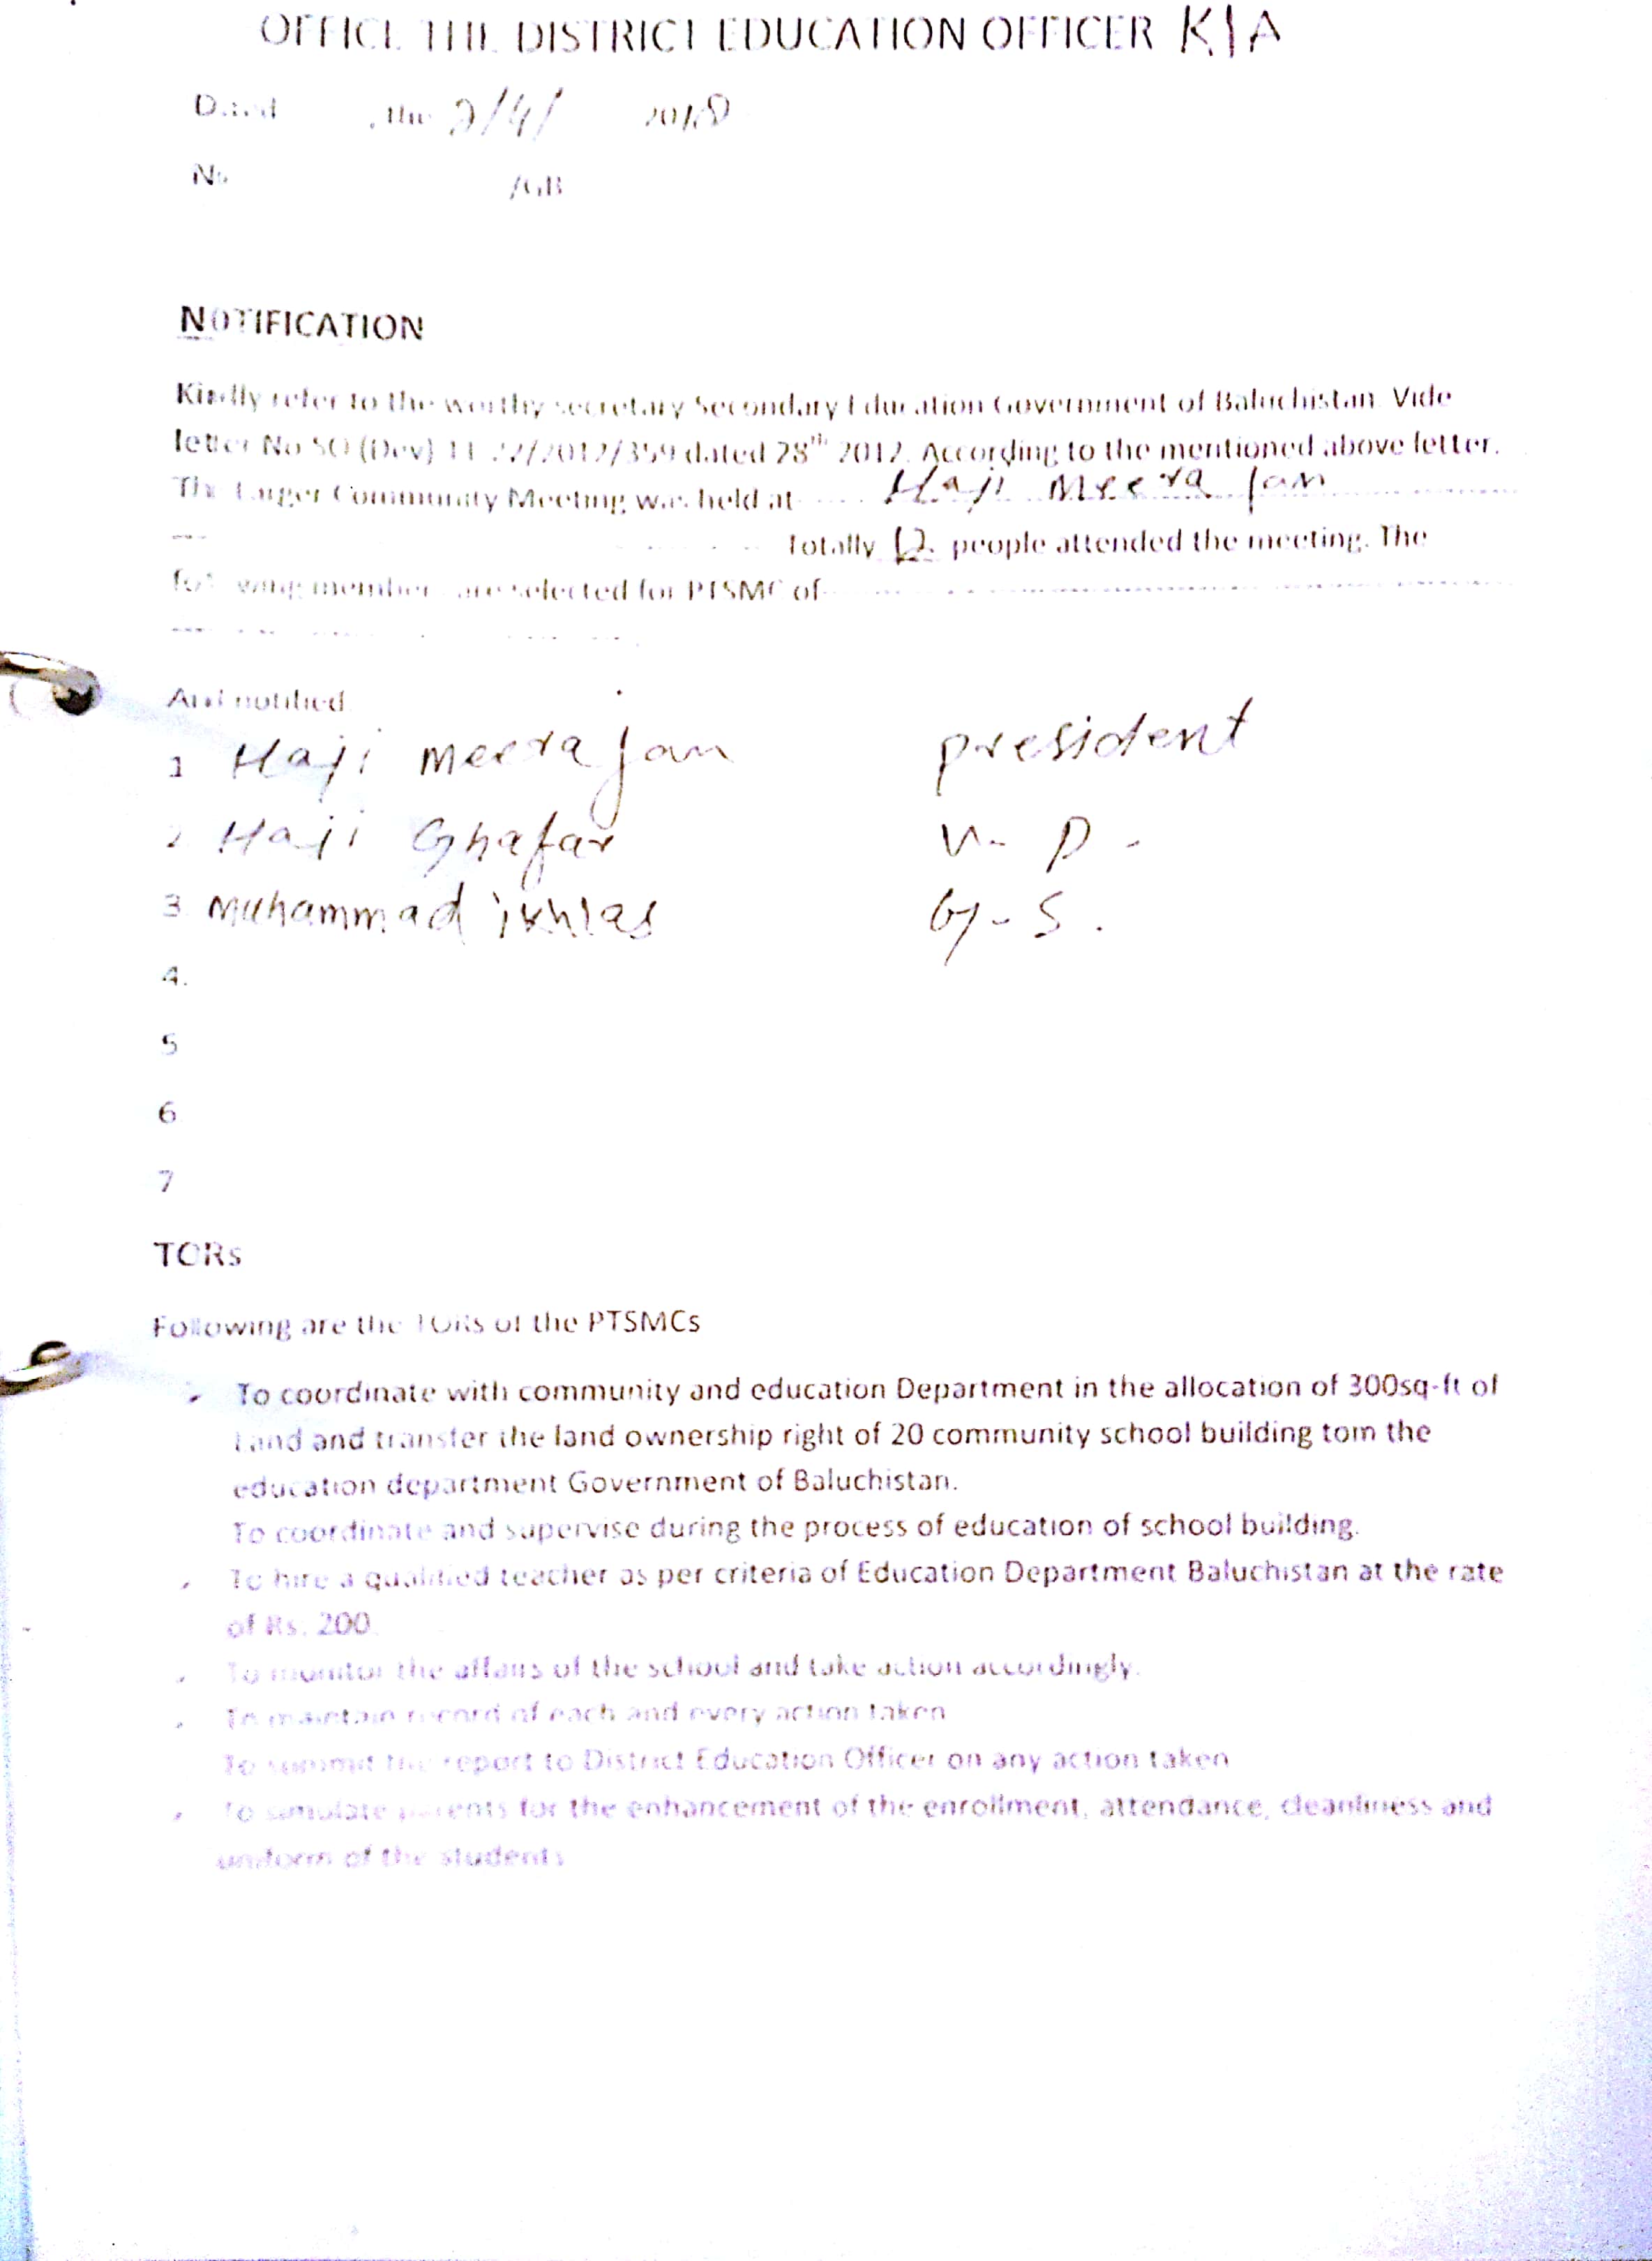 OFFICE THE DISTRICT EDUCATION OFFICER K|A
Dated , the 2/4/ 2018
No /GB
NOTIFICATION
Kindly refer to the worthy secretary Secondary Education Government of Baluchistan. Vide
letter No SO (Dev) 11-22/2012/359 dated 28th 2012. According to the mentioned above letter.
The Larger Community Meeting was held at Haji Meera Jan
Totally 12 people attended the meeting. The
following members are selected for PTSMC of
And notified
1 Haji Meera Jan president
2. Haji Ghafar V. P.
3. Muhammad ikhlas G-S.
4.
5
6
7
TORs
Following are the TORs of the PTSMCs
To coordinate with community and education Department in the allocation of 300sq-ft of
Land and transfer the land ownership right of 20 community school building tom the
education department Government of Baluchistan.
To coordinate and supervise during the process of education of school building.
To hire a qualified teacher as per criteria of Education Department Baluchistan at the rate
of Rs. 200
To monitor the affairs of the school and take action accordingly.
To maintain record of each and every action taken
To summit the report to District Education Officer on any action taken
To simulate parents for the enhancement of the enrollment, attendance, cleanliness and
uniform of the students